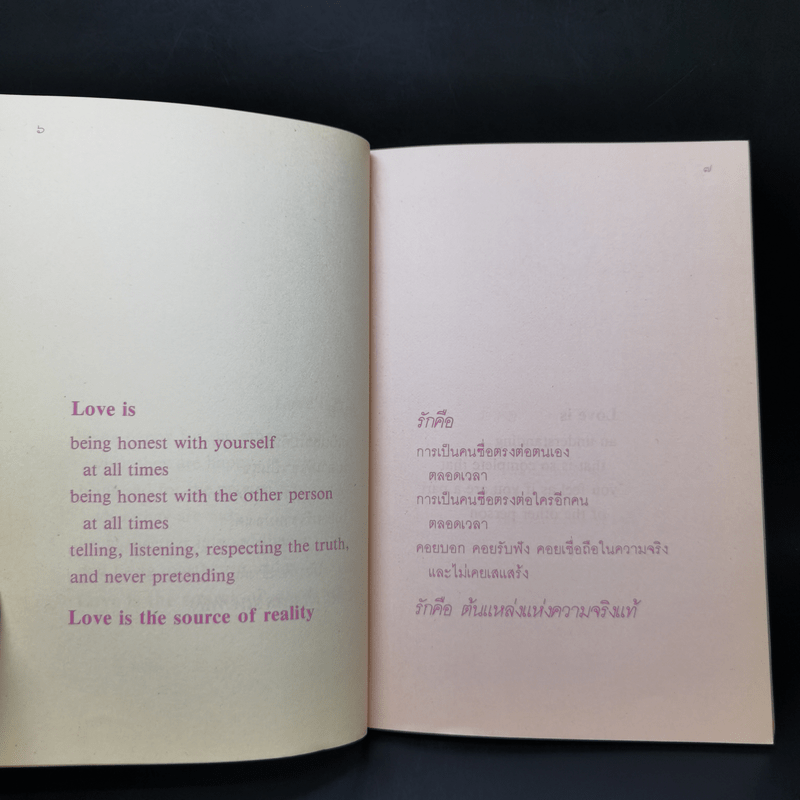 ๖
Love is
being honest with yourself
at all times
being honest with the other person
at all times
telling, listening, respecting the truth,
and never pretending
Love is the source of reality
๗
รักคือ
การเป็นคนซื่อตรงต่อตนเอง
ตลอดเวลา
การเป็นคนซื่อตรงต่อใครอีกคน
ตลอดเวลา
คอยบอก คอยรับฟัง คอยเชื่อถือในความจริง
และไม่เคยเสแสร้ง
รักคือ ต้นแหล่งแห่งความจริงแท้